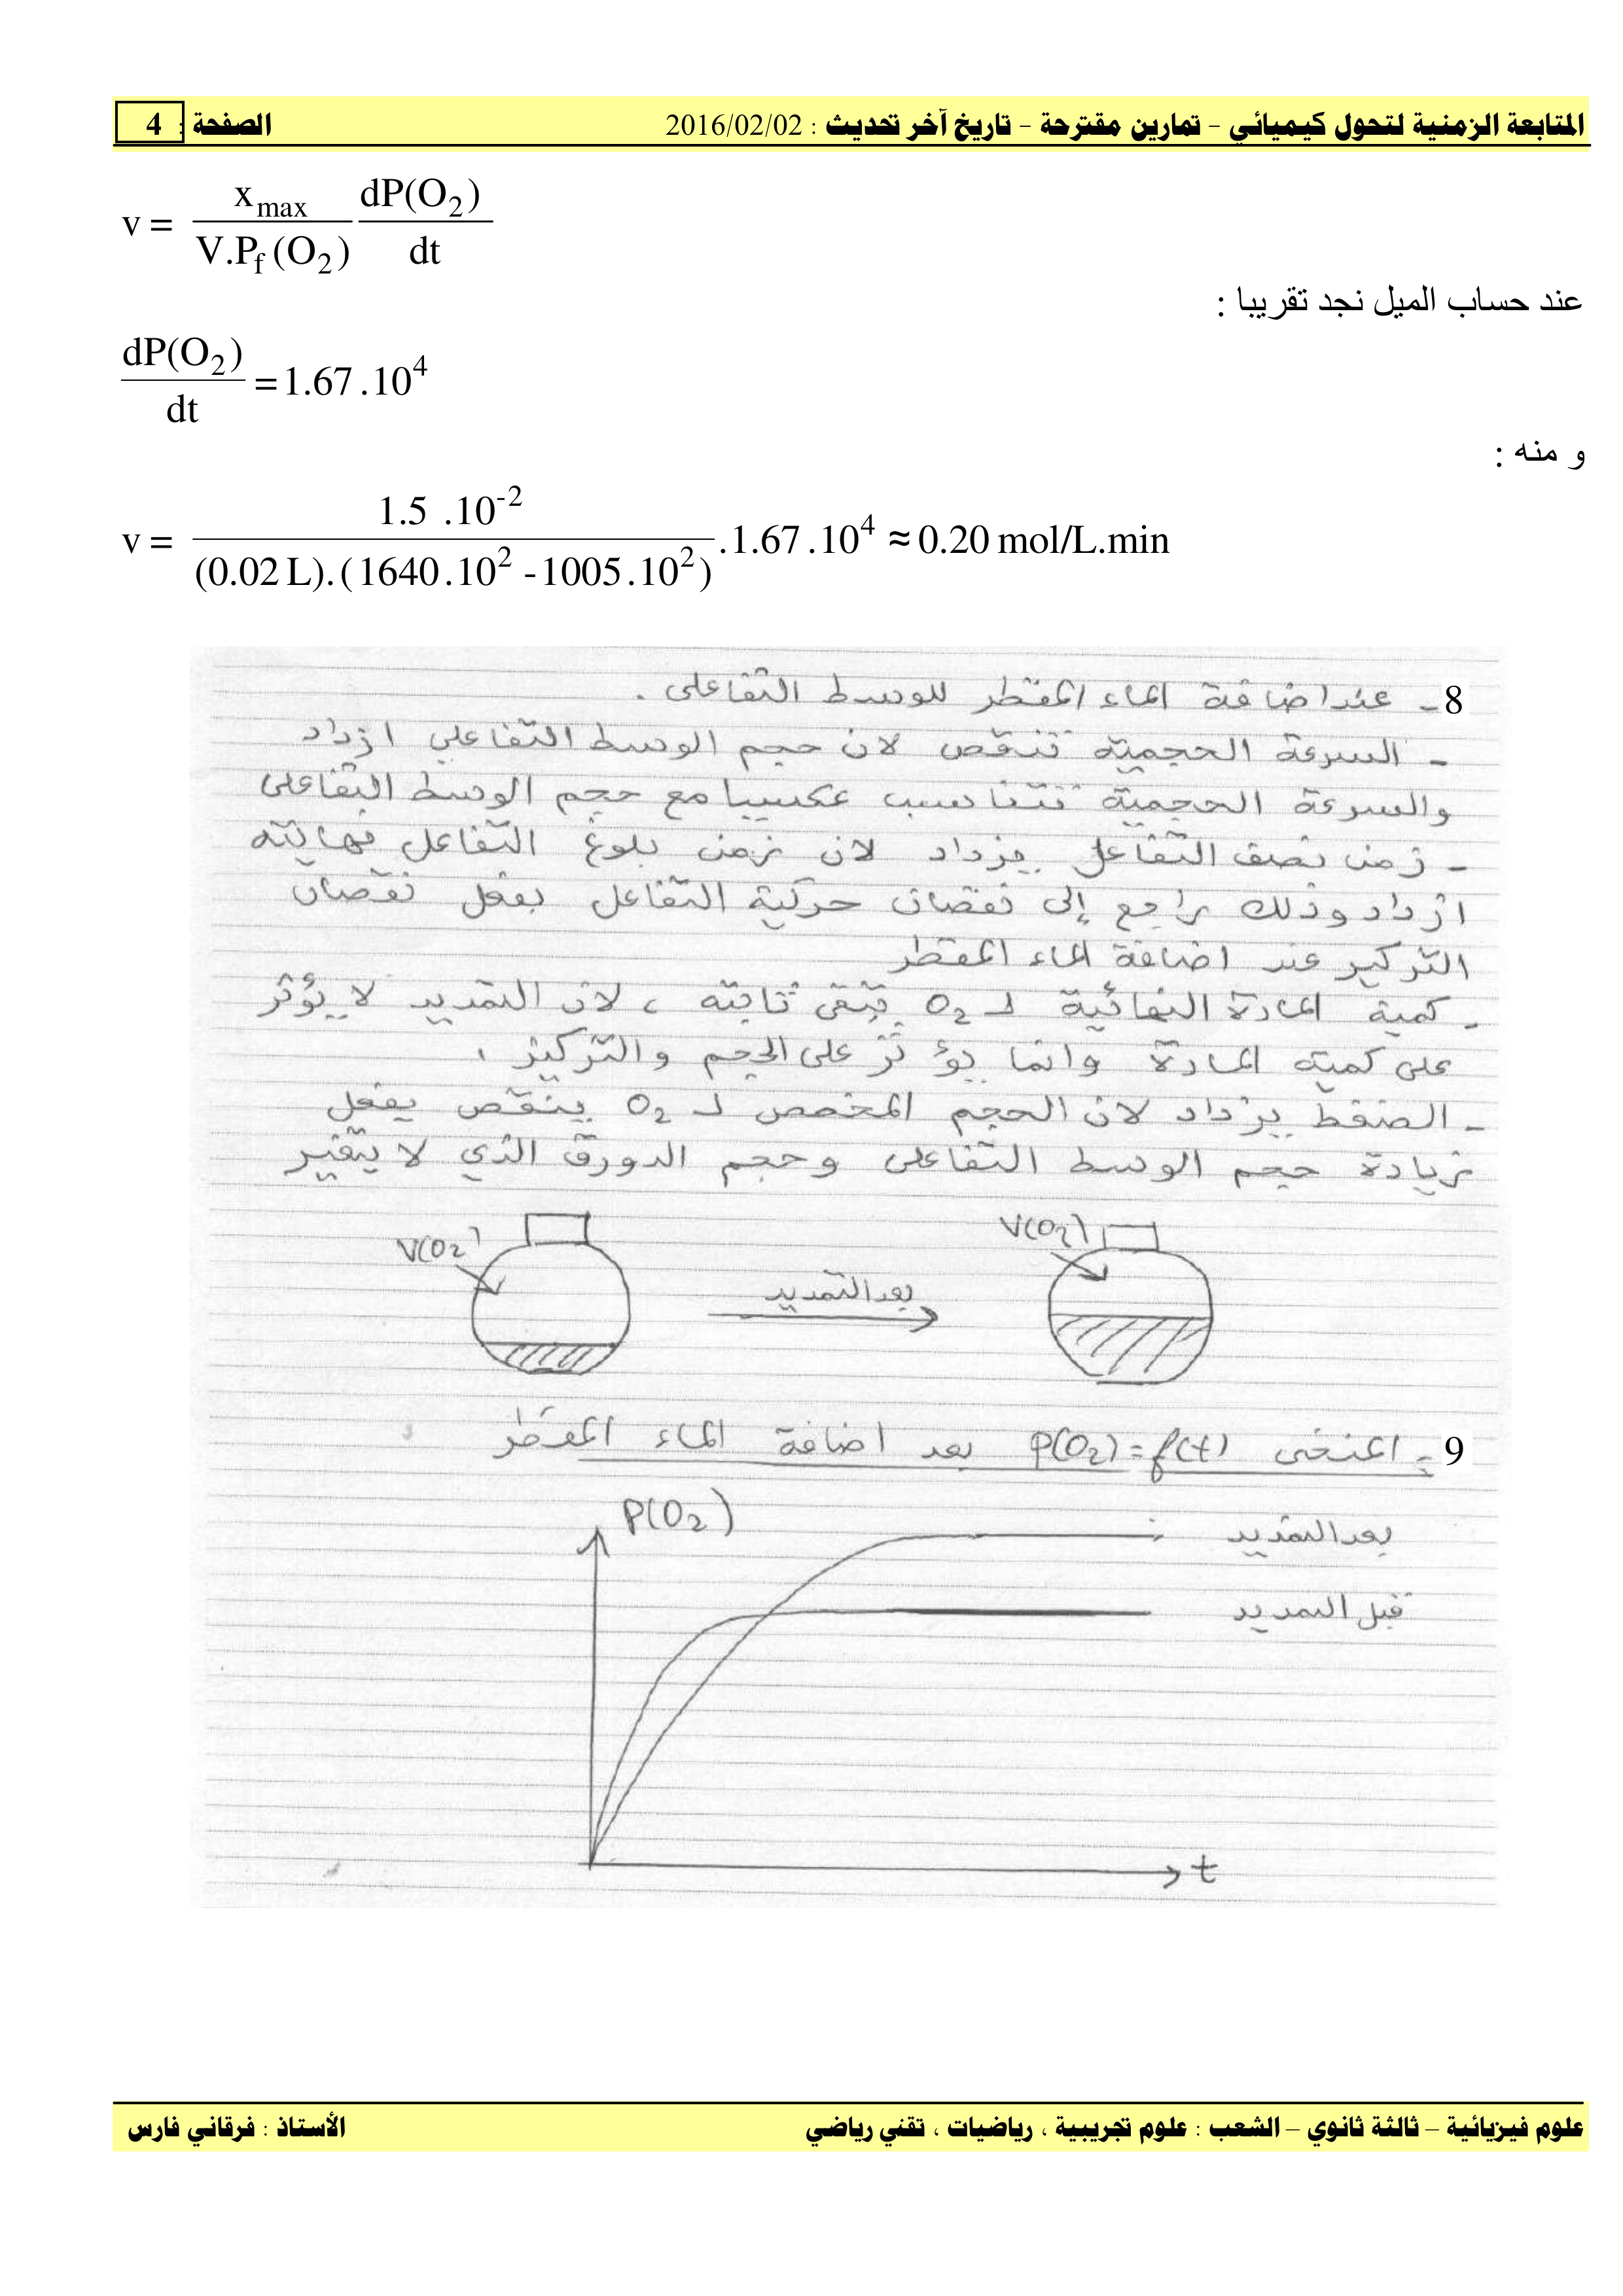 المتابعة الزمنية لتحول كيميائي – تمارين مقترحة – تاريخ آخر تحديث : 2016/02/02 الصفحة : 4
v = x_max / V.P_f(O₂) dP(O₂) / dt
عند حساب الميل نجد تقريبا :
dP(O₂) / dt = 1.67 . 10⁴
و منه :
v = 1.5 . 10⁻² / (0.02 L).(1640 . 10² - 1005 . 10²) . 1.67 . 10⁴ ≈ 0.20 mol/L.min
8- عند اضافة الماء المقطر للوسط التفاعلي .
- السرعة الحجمية تنقص لان حجم الوسط التفاعلي ازداد
والسرعة الحجمية تتناسب عكسيا مع حجم الوسط التفاعلي
- زمن نصف التفاعل يزداد لان زمن بلوغ التفاعل نهايته
ازداد وذلك راجع إلى نقصان حركية التفاعل بفعل نقصان
التركيز عند اضافة الماء المقطر
- كمية المادة النهائية لـ O₂ تبقى ثابتة ، لان التمديد لا يؤثر
على كمية المادة وانما يؤثر على الحجم والتركيز .
- الضغط يزداد لان الحجم المخصص لـ O₂ ينقص بفعل
زيادة حجم الوسط التفاعلي وحجم الدورق الذي لا يتغير
V(O₂) بعد التمديد V(O₂)
9- المنحنى P(O₂) = f(t) بعد اضافة الماء المقطر
P(O₂)
بعد التمديد
قبل التمديد
t
علوم فيزيائية – ثالثة ثانوي – الشعب : علوم تجريبية ، رياضيات ، تقني رياضي الأستاذ : فرقاني فارس